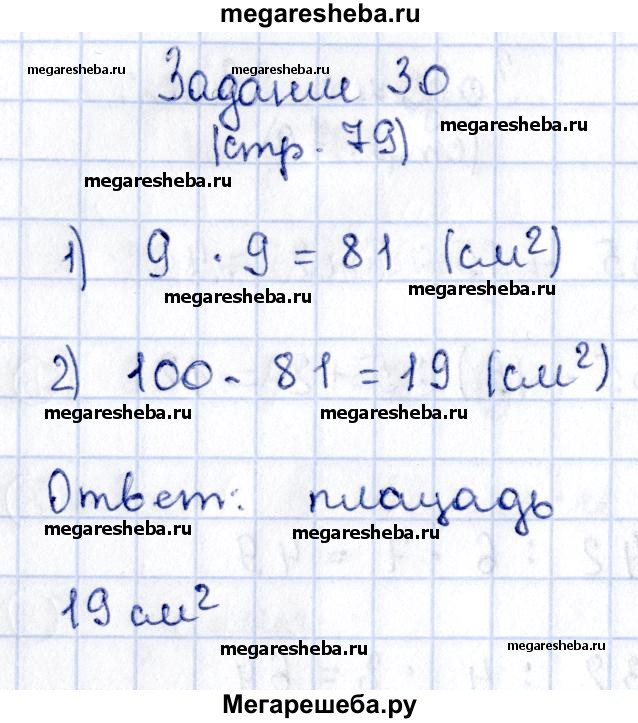 megaresheba.ru
megaresheba.ru megaresheba.ru
Задание 30
megaresheba.ru
(стр. 79)
megaresheba.ru
1) 9 · 9 = 81 (см²)
megaresheba.ru megaresheba.ru
2) 100 - 81 = 19 (см²)
megaresheba.ru megaresheba.ru
Ответ: площадь
megaresheba.ru megaresheba.ru
19 см²
megaresheba.ru megaresheba.ru
Мегарешеба.ру